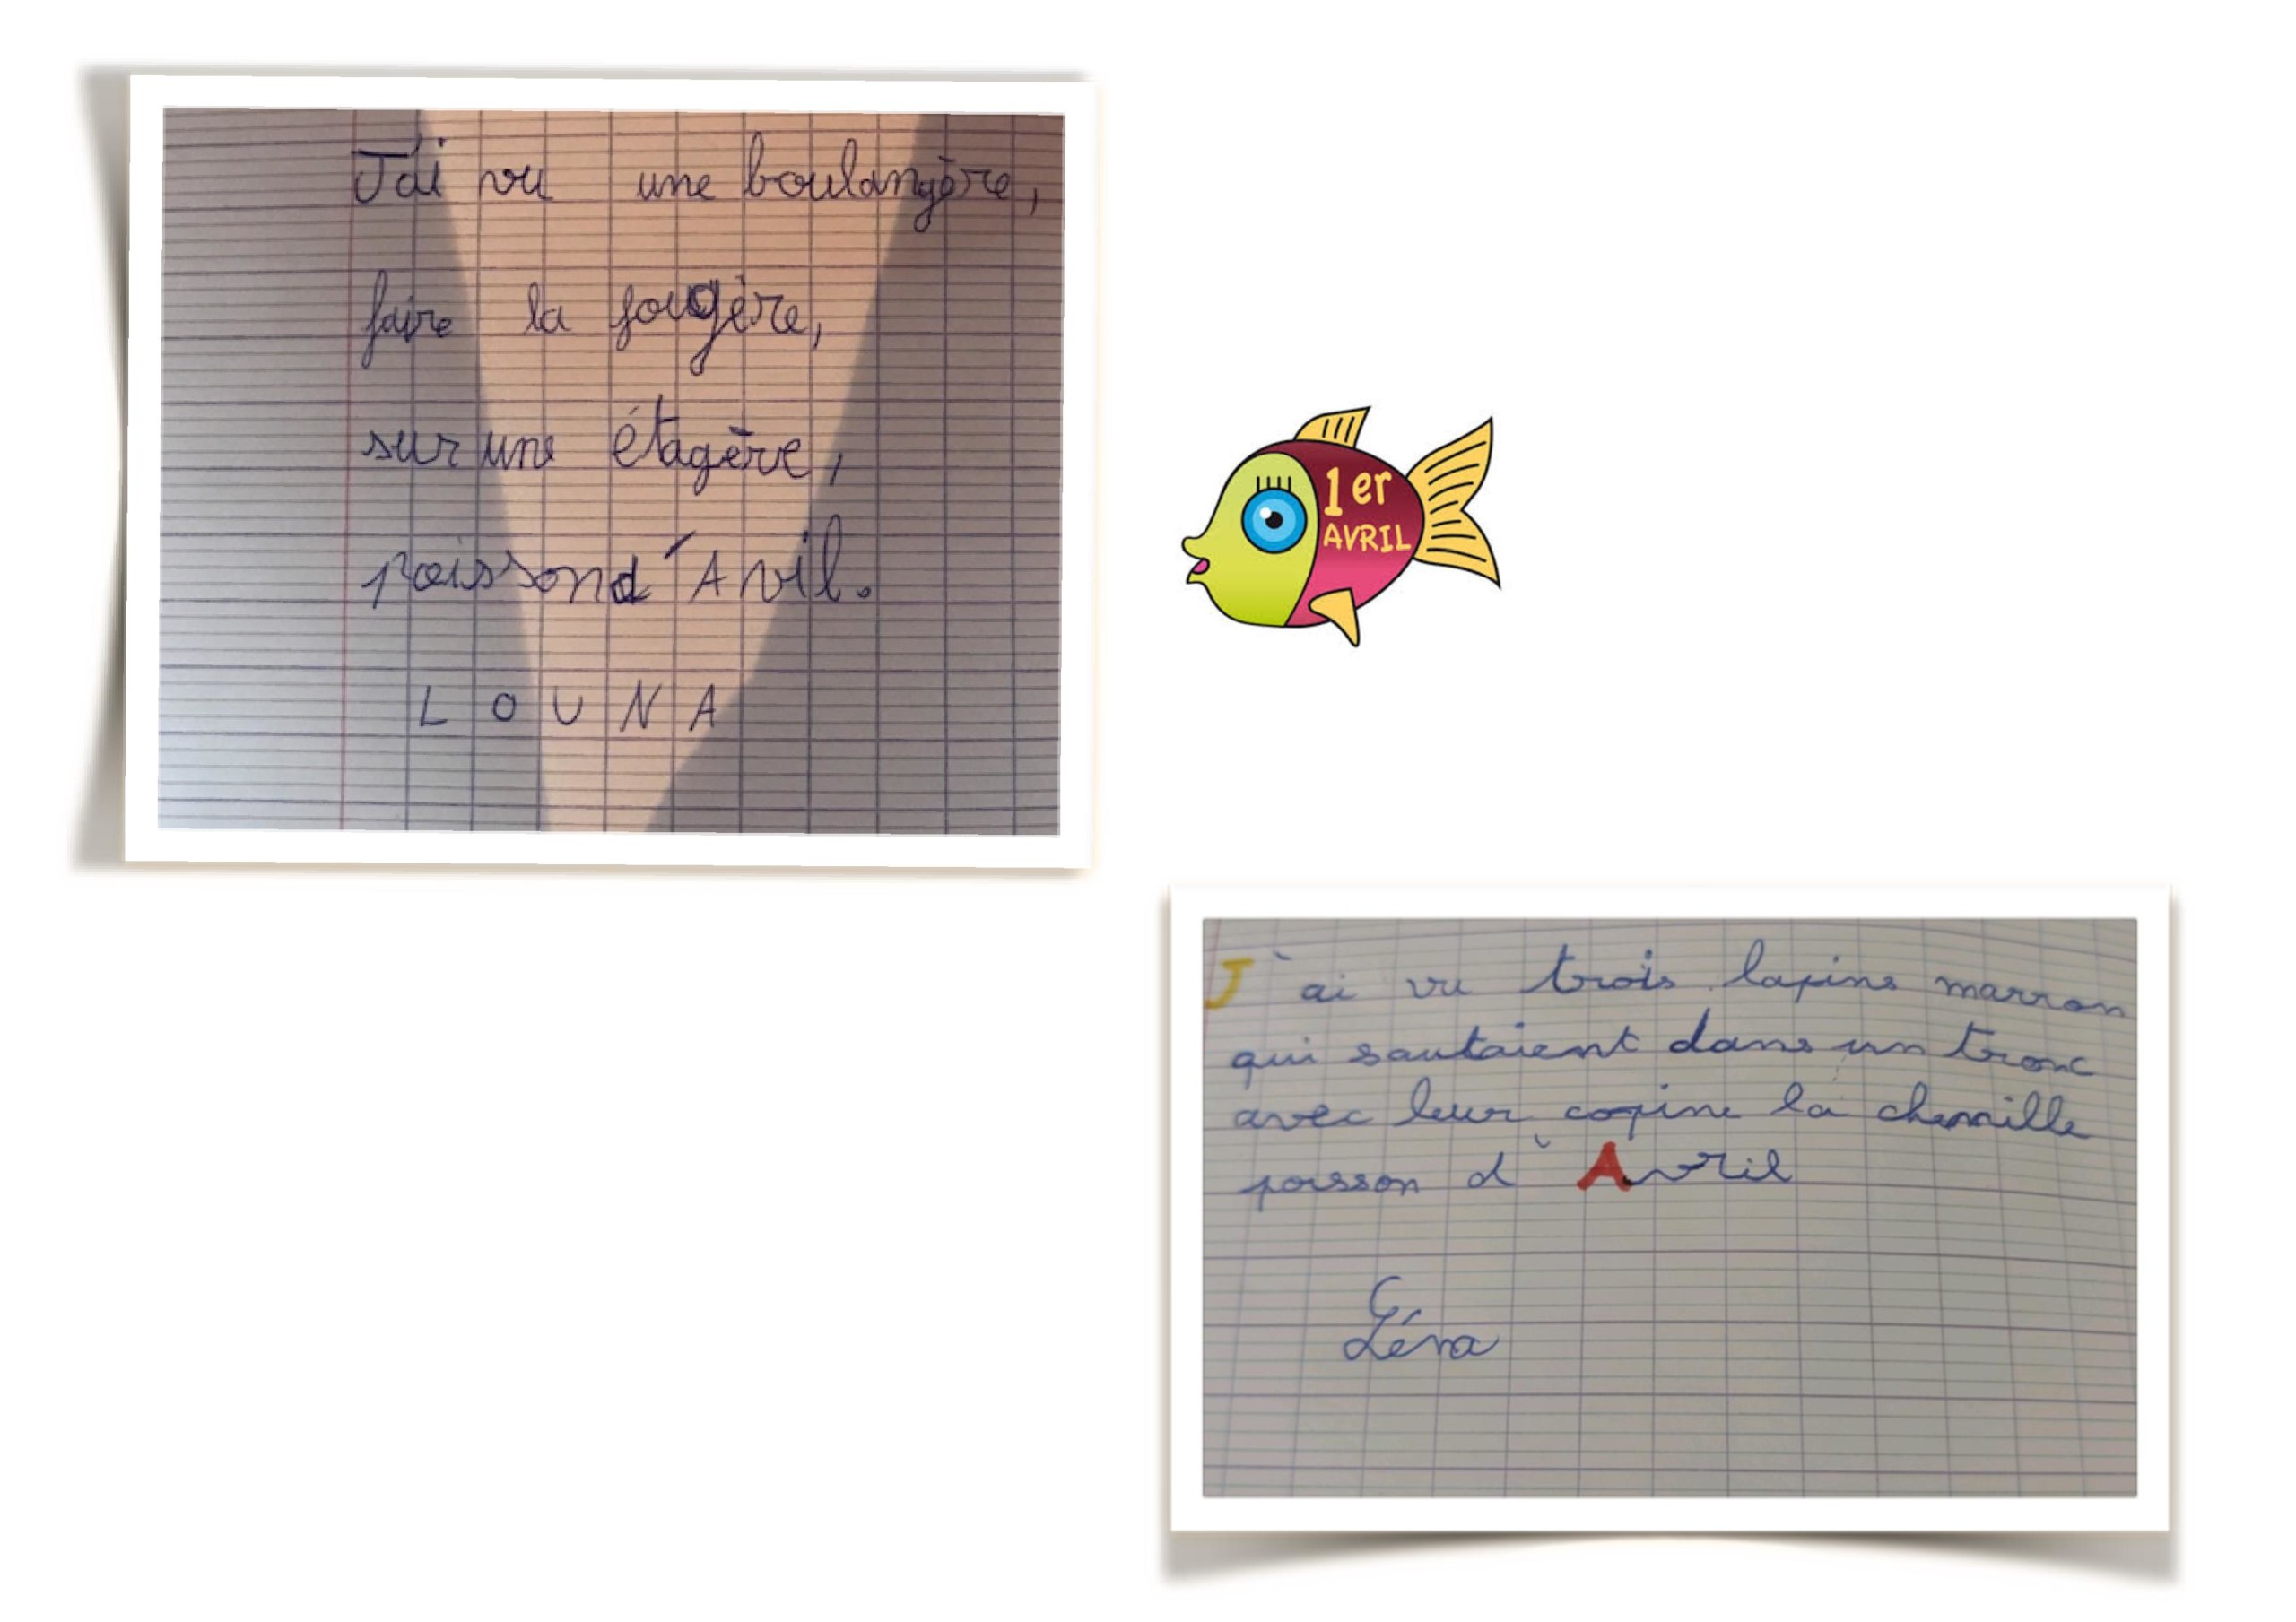 J'ai vu une boulangère,
faire la fougère,
sur une étagère,
poisson d'Avil.
LOUNA
1er
AVRIL
J'ai vu trois lapins marron
qui sautaient dans un tronc
avec leur copine la chenille
poisson d'Avril
Léna